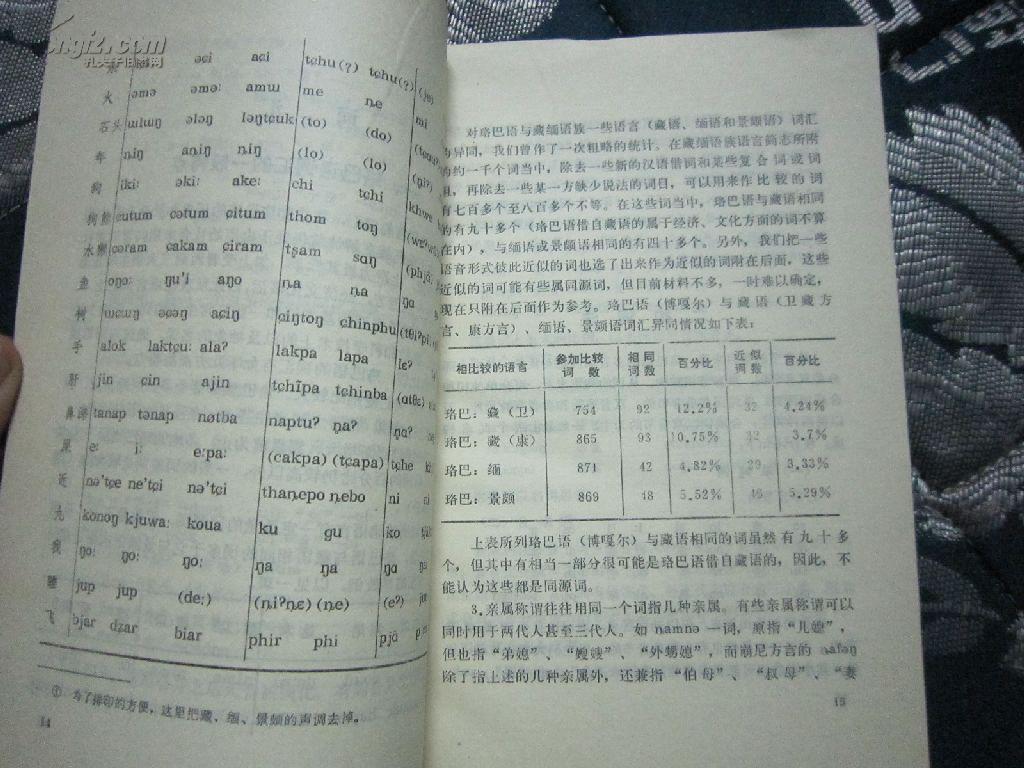 火 əmə əmə: amɯ me ȵe mi
石头 ɯlɯŋ ələŋ ləŋtɕuk (to) (do)
年 ȵiŋ aȵiŋ ȵiŋ (lo) (lo)
狗 iki: əki: ake: chi tɕhi khwe
狗熊 ɕutum ɕətum ɕitum thom toŋ
水獭 ɕəram ɕakam ɕiram tʂam sɑŋ
鱼 oŋo: ŋu'i aŋo ȵa ȵa ŋɑ
树 ɯɕɯŋ əɕəŋ aɕiŋ ɕiŋtoŋ ɕhinphu
手 alok laktɕu: alaʔ lakpa lapa lɛʔ
肝 jin ɕin ajin tɕhĩpa tɕhinba
tanap tənap nøtba naptuʔ ŋaʔ
屎 e: j: e:pa: (cakpa) (tɕapa) tɕhe
近 nə'tɕe ne'tɕi nə'tɕi thaȵepo ȵebo ni
九 konoŋ kjuwa: koua ku gu ko
我 ŋo: ŋo: ŋo: ŋa ŋa ŋɑ
睡 jup jup (de:) (ȵiʔȵɛ) (ȵe) (eʔ)
飞 bjar dzar biar phir phi pjã
① 为了排印的方便，这里把藏、缅、景颇的声调去掉。
14
对珞巴语与藏缅语族一些语言（藏语、缅语和景颇语）词汇
的异同，我们曾作了一次粗略的统计。在藏缅语族语言简志所附
的约一千个词当中，除去一些新的汉语借词和某些复合词或词
组，再除去一些某一方缺少说法的词目，可以用来作比较的词
有七百多个至八百多个不等。在这些词当中，珞巴语与藏语相同
的有九十多个（珞巴语借自藏语的属于经济、文化方面的词不算
在内），与缅语或景颇语相同的有四十多个。另外，我们把一些
语音形式彼此近似的词也选了出来作为近似的词附在后面，这些
近似的词可能有些属同源词，但目前材料不多，一时难以确定，
现在只附在后面作为参考。珞巴语（博嘎尔）与藏语（卫藏方
言、康方言）、缅语、景颇语词汇异同情况如下表：
相比较的语言 参加比较词数 相同词数 百分比 近似词数 百分比
珞巴：藏（卫） 754 92 12.2% 32 4.24%
珞巴：藏（康） 865 93 10.75% 32 3.7%
珞巴：缅 871 42 4.82% 29 3.33%
珞巴：景颇 869 48 5.52% 46 5.29%
上表所列珞巴语（博嘎尔）与藏语相同的词虽然有九十多
个，但其中有相当一部分很可能是珞巴语借自藏语的，因此，不
能认为这些都是同源词。
3.亲属称谓往往用同一个词指几种亲属。有些亲属称谓可以
同时用于两代人甚至三代人。如 ȵamnə 一词，原指“儿媳”，
但也指“弟媳”、“嫂嫂”、“外甥媳”，而崩尼方言的
除了指上述的几种亲属外，还兼指“伯母”、“叔母”、“妻
15